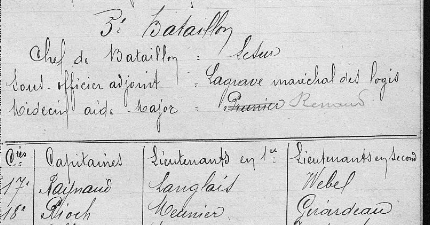 5e Bataillon
Chef de Bataillon :
Sous-officier adjoint : Lagrave maréchal des logis
Médecin aide-Major : Prunier Renaud
Cies Capitaines Lieutenants en 1er Lieutenants en second
17e Raynaud Langlais Webel
18e Rioch Meunier Girardeau